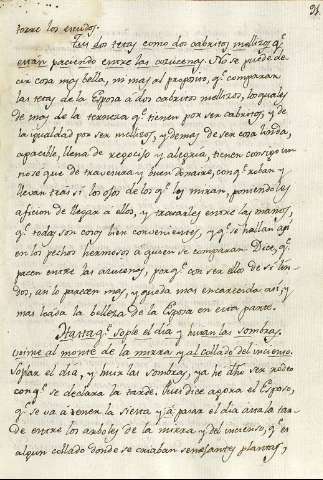 91.
torre los escudos.
Tus dos tetas como dos cabritos mellizos q.e
estan paciendo entre las azucenas. No se puede de-
cir cosa mas bella, ni mas al proposito, q.e comparar
las tetas de la Esposa á dos cabritos mellizos, los quales
de mas de la terneza q.e tienen por ser cabritos, y de
la igualdad por ser mellizos, y demas de ser cosa linda,
apacible, llena de regocijo y alegria, tienen consigo un
no se que de travesura y buen donaire, con q.e roban y
llevan tras si los ojos de los q.e los miran, poniendoles
aficion de llegar a ellos, y tratarles entre las manos,
q.e todas son cosas bien convenientes, y q.e se hallan asi
en los pechos hermosos á quien se comparan. Dice, q.e
pacen entre las azucenas, porq.e con ser ellos de si lin-
dos, asi lo parecen mas, y queda mas encarecida asi, y
mas loada la belleza de la Esposa en esta parte.
Hasta q.e sople el dia y huian las sombras,
vine al monte de la mirra y al collado del incienso.
Soplar el dia, y huir las sombras, ya he dho ser rodeo
con q.e se declara la tarde. Pues dice agora el Esposo,
q.e se va á tener la siesta y á pasar el dia asta la tar-
de entre los arboles de la mirra y del incienso, q.e es
algun collado donde se criaban semejantes plantas,